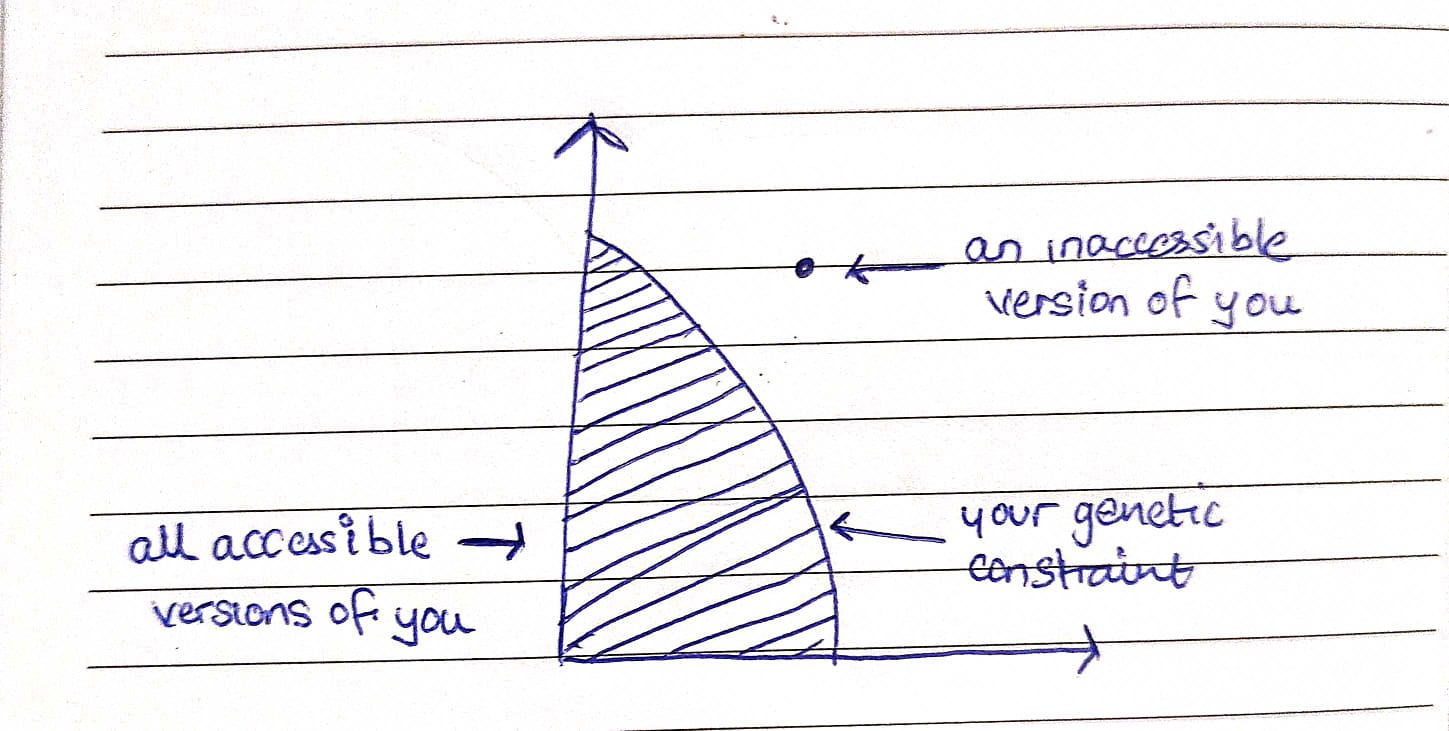 an inaccessible
version of you
your genetic
constraint
all accessible
versions of you